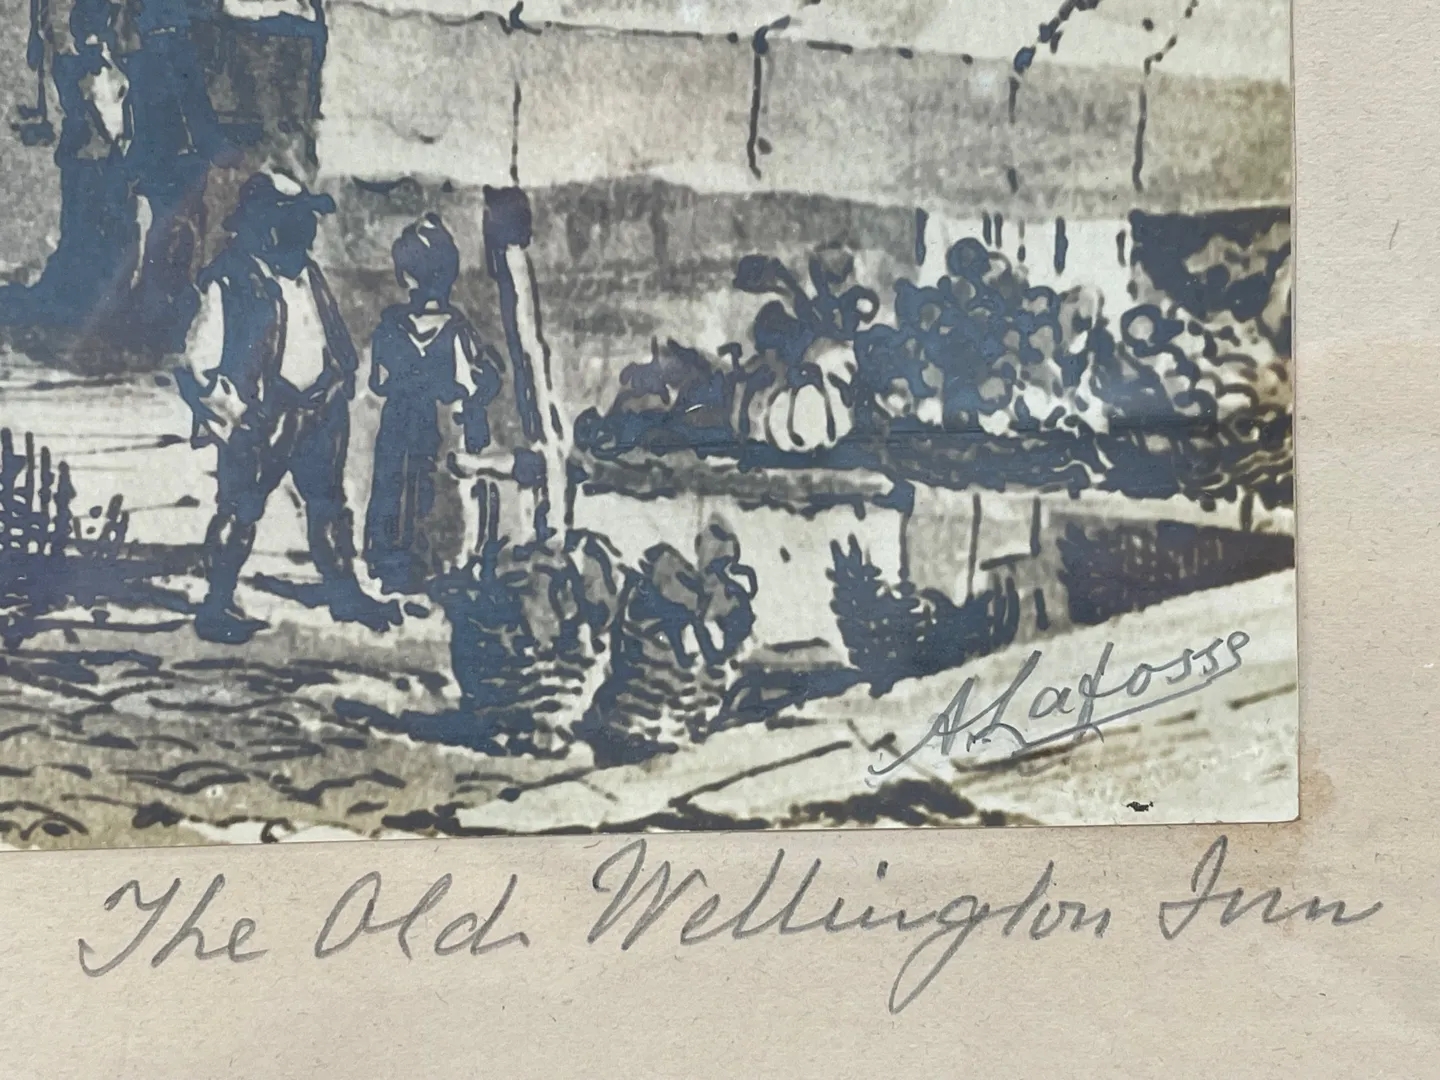 A. Lafosse
The Old Wellington Inn